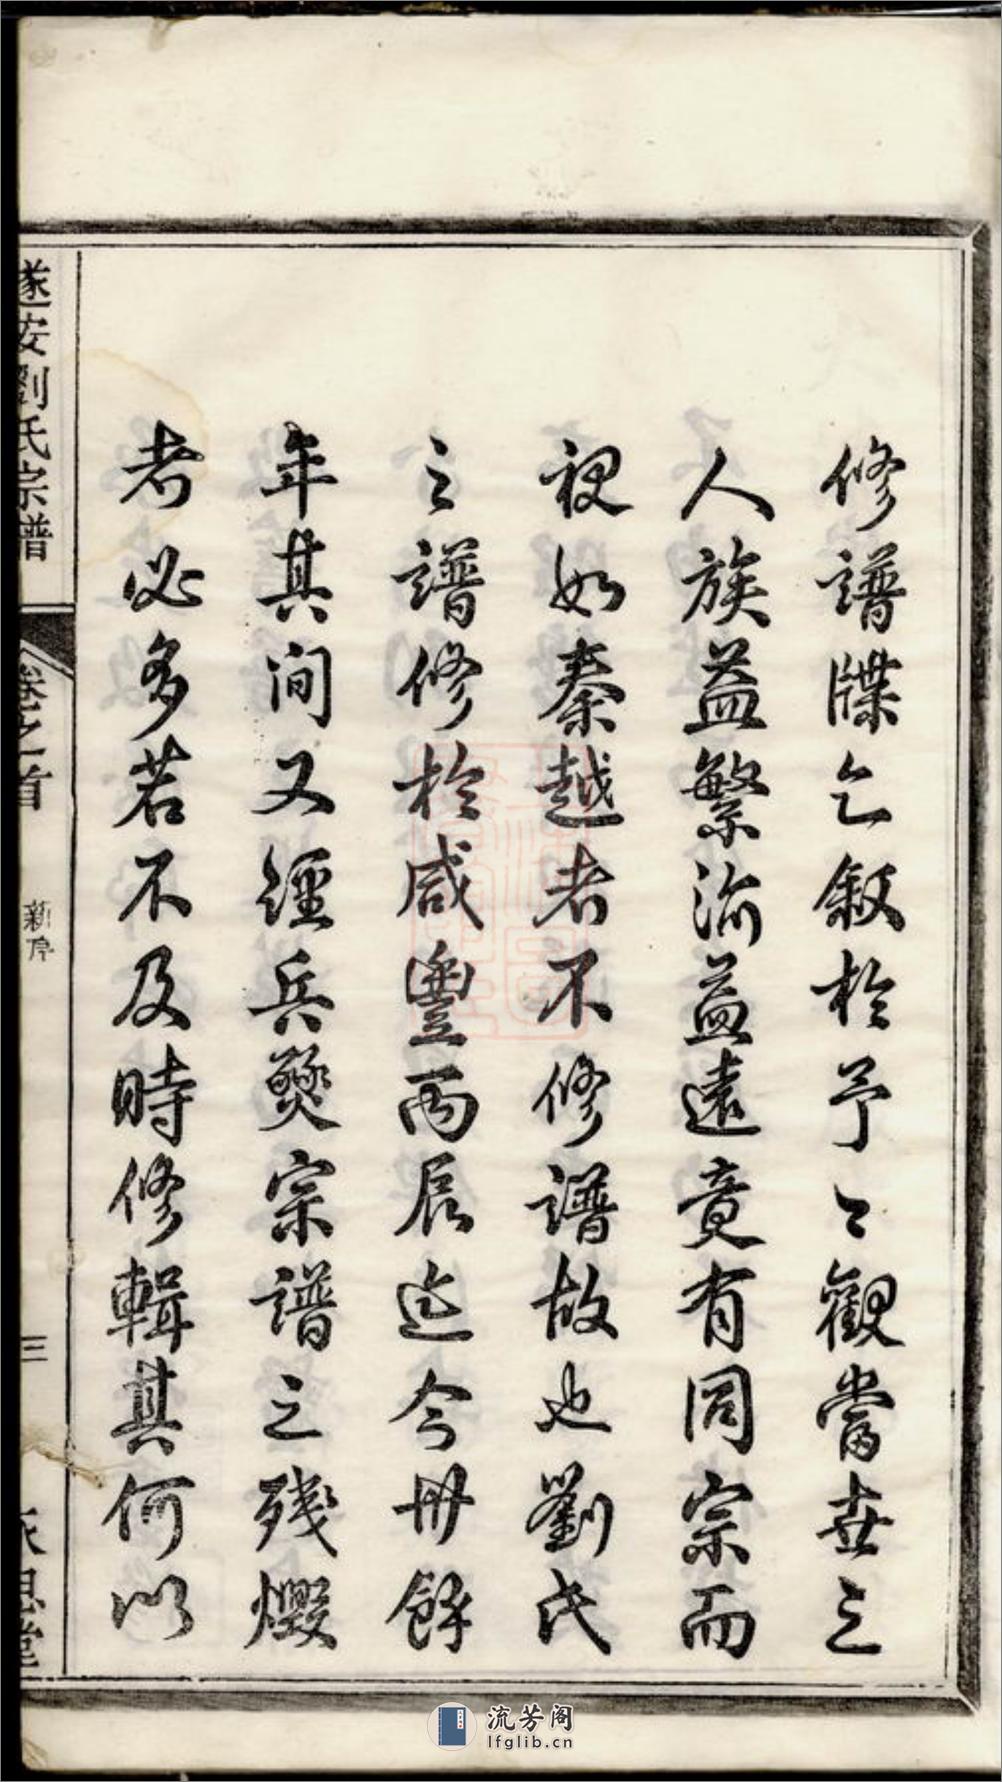 修譜牒乞敘於予〻觀當世之
人族益繁派益遠竟有同宗而
視如秦越者不修譜故也劉氏
之譜修於咸豐丙辰迄今卌餘
年其間又經兵燹宗譜之殘燬
者必多若不及時修輯其何以
遂安劉氏宗譜
卷之首
新序
三
思堂
流芳阁
lfglib.cn